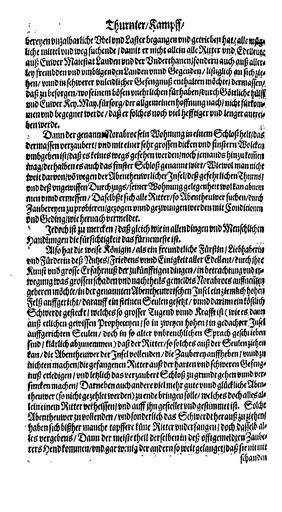 Thurnier/Kampff/
bereyen vnzalbarliche Vbel vnd Laster begangen vnd getrieben hat/ alle mög-
liche mittel vnd weg suchende / damit er nicht allein alle Ritter vnd Edelleut
auß Euwer Maiestat Landen vnd der Vnderthanen/ sondern auch auß aller-
ley frembden vnd vmbligenden Landen vnnd Gegenden / listiglich an sich zie-
hen / vnnd in schwerer vnleidlicher Gefengknuß enthalten möcht/ dermassen/
daß zu besorgen/ wo seinem bösen vnehrlichen fürhaben/ durch Göttliche hülff
vnd Euwer Kön. May. fürsorg/ der allgemeinen hoffnung nach/ nicht fürkom-
men vnd begegnet werde / daß er solches noch viel hefftiger vnd lenger antrei-
ben werde.
Dann der genannt Norabroc sein Wohnung in einem Schloß helt/ das
dermassen verzaubert / vnd mit einer sehr grossen dicken vnd finstern Wolcken
vmbgeben ist/ daß es keines wegs gesehen werden/ noch jemands hinzu kommen
mag/ derhalben es auch das finster Schloß genannt wirt/ Wiewol man nicht
weit darvon/ vö wegen der Abentheuwrlicher Insel/ deß gefehrlichen Thurns/
vnd deß vngewissen Durchzugs/ seiner Wohnung gelegenheit wol kan abnem-
men vnnd ermessen/ Daselbst sich alle Ritter/ so Abentheuwr suchen/ durch
Zaubereyen zu probieren/ gezogen vnnd gezwungen werden mit Conditionen
vnd Geding/ wie hernach vermeldet.
Jedoch ist zu mercken / daß gleich wie in allen dingen vnd Menschlichen
Handlungen die fürsichtigkeit das fürnemeste ist.
Also hat die weise Königin / als ein freundtliche Fürstin/ Liebhaberin
vnd Fürderin deß Nutzes/ Friedens vnnd Einigkeit aller Edelleut/ durch ihre
Kunst vnd grosse Erfahrung der zukünfftigen dingen/ in betrachtung vnd er-
wegung was grossen schaden vnnd nachtheils gemeldts Norabroc
geberen möchte/ in der genannten Abentheuwrischen Insel ein ziemlich hohen
Felß auffgericht/ darauff ein steinen Seulen gesetzt / vnnd darinn ein köstlich
Schwerdt gesteckt/ welches so grosser Tugend vnnd Krafft ist/ wie es dann
auß etlichen gewissen Prophezeyen/ so in zweyen hohen/ in gedachter Insel
auffgerichten Seulen / doch in so alter vnbreuchlichen Sprach geschrieben
sind/ klärlich abzunemmen/ daß der Ritter/ so solches auß der Seulen ziehen
kan/ die Abentheuwer der Insel vollenden/ die Zauberey auffheben/ vnnd zu
nichten machen/ die gefangenen Ritter auß der harten vnd schweren Gefeng-
nuß erledigen/ vnd letzlich das verzaubert Schloß zu grunde gehen vnnd ver-
sincken machen/ Darneben auch andere viel mehr gute vnd glückliche Aben-
theuwer/ (so nicht gezehlet werden) zu ende bringen solle/ welches doch alles al-
lein einem Ritter verheissen/ vnd auff ihn gestellet vnd gestimmet ist. Solche
Abentheuwr zu vollenden/ vnd fonderlich das Schwerdt herauß zu ziehen/
haben sich bißher manche tapffere küne Ritter vnderfangen/ doch dasselb al-
les vergebens/ Dann der meiste theil derselben in deß offtgemeldten Zaube-
rers Hend kommen/ vnd gar wenig der andern so weit gelanget/ daß sie nit mit
schanden